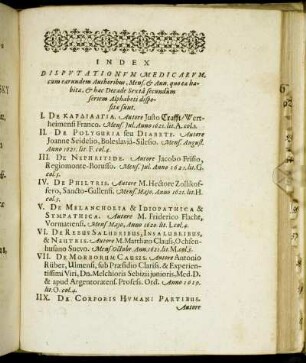 INDEX
DISPVTATIONVM MEDICARVM,
cum earundem Authoribus, Mens. & Ann. quota ha-
bita, & hac Decade Sextâ secundùm
seriem Alphabeti dispo-
sitæ sunt.
I. DE KARDIALGIA. Autore Justo Crafft, Wert-
heimensi Franco. Mens. Jul. Anno 1621. lit. A. col. 1.
II. DE POLYOURIA seu DIABETE. Autore
Joanne Seidelio, Boleslaviâ-Silesio. Mens. August.
Anno 1621. lit. F. col. 4.
III. DE NEPHRITIDE. Autore Jacobo Frisio,
Regiomonte-Borusso. Mens. Jul. Anno 1622. lit. G.
col. 3.
IV. DE PHILTRIS. Autore M. Hectore Zollikof-
fero, Sancto-Gallensi. Mens. Majo. Anno 1622. lit. H.
col. 3.
V. DE MELANCHOLIA & IDIOPATHICA &
SYMPATHICA. Autore M. Friderico Flacht,
Vormatiensi. Mens. Majo. Anno 1620. lit. L. col. 4.
VI. DE REBUS SALUBRIBUS, INSALUBRIBUS,
& NEUTRIS. Autore M. Matthæo Claus. Ochsen-
husano Suevo. Mens. Octobr. Ann. 1621. lit. M. col. 3.
VII. DE MORBORUM CAUSIS. Autore Antonio
Rüber, Ulmensi, sub Præsidio Clariss. & Experien-
tissimi Viri, Dn. Melchioris Sebizii junioris, Med. D.
& apud Argentoratens. Profess. Ord. Anno 1619.
lit. O. col. 4.
IIX. DE CORPORIS HVMANI PARTIBUS.
Autore